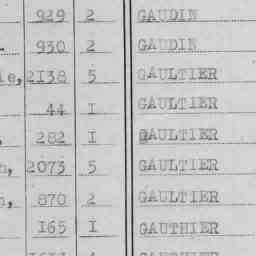 929 2 GAUDIN
930 2 GAUDIN
2138 5 GAULTIER
44 I GAULTIER
282 I GAULTIER
2073 5 GAULTIER
870 2 GAULTIER
165 I GAUTHIER